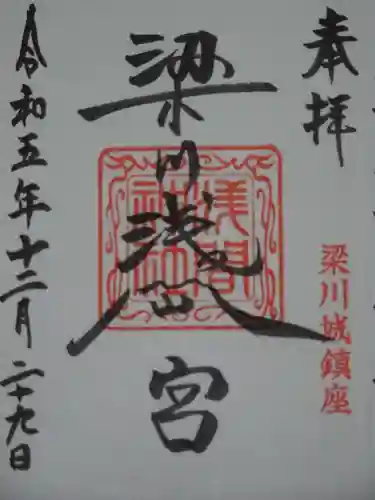 奉拝
梁川城鎮座
梁川浅間宮
浅間
神社
令和五年十二月二十九日